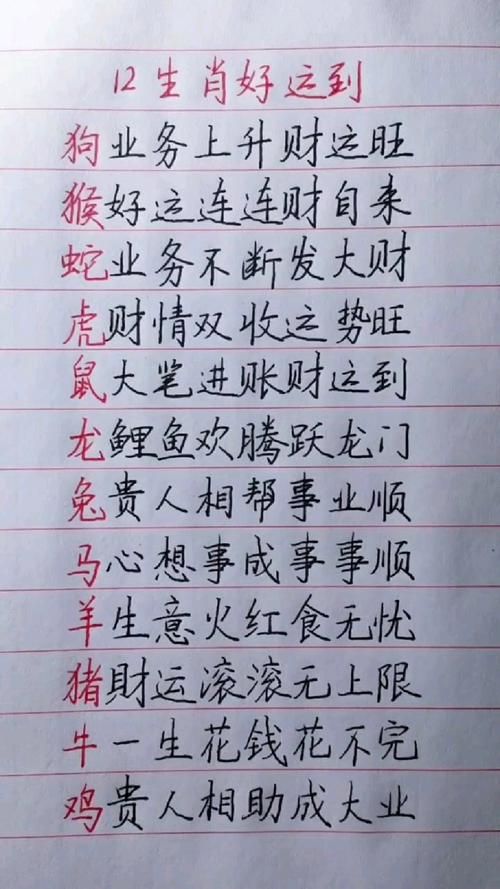 12生肖好运到
狗业务上升财运旺
猴好运连连财自来
蛇业务不断发大财
虎财情双收运势旺
鼠大笔进账财运到
龙鲤鱼欢腾跃龙门
兔贵人相帮事业顺
马心想事成事事顺
羊生意火红食无忧
猪財运滚滚无上限
牛一生花钱花不完
鸡贵人相助成大业